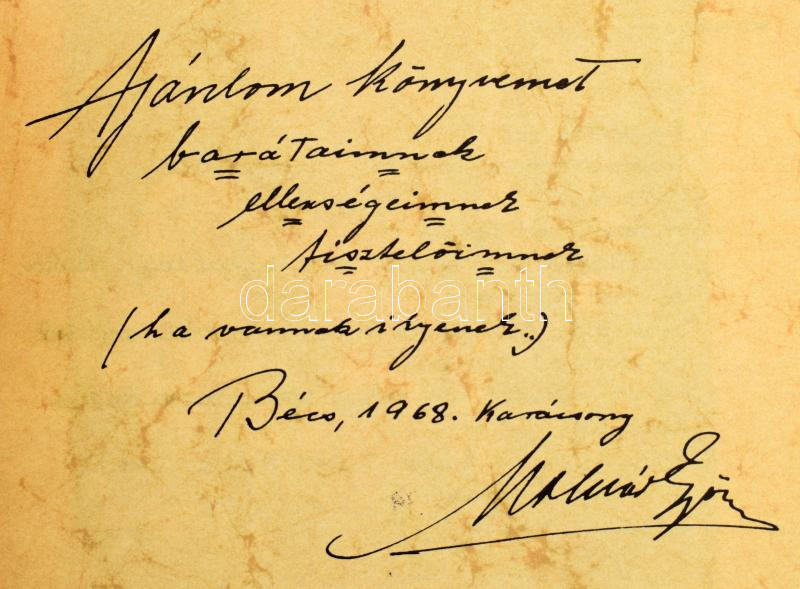 Ajánlom könyvemet
barátaimnak
ellenségeimnek
tisztelőimnek
darabanth
(ha vannak ilyenek..)
Bécs, 1968. Karácsony
Molnár